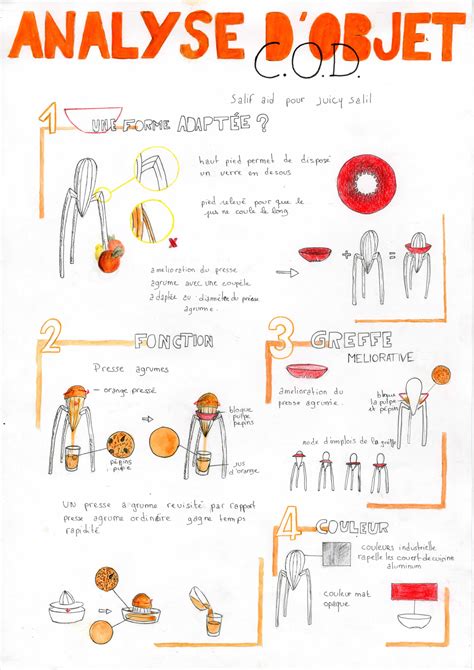 ANALYSE D'OBJET
C.O.D.
Salif aid pour Juicy Salil
1 UNE FORME ADAPTÉE ?
haut pied permet de disposé
un verre en dessous
pied relevé pour que le
jus ne coule le long
x
+
=
amelioration du presse
agrume avec une coupelle
adaptée au diamètre du presse
agrume.
2 FONCTION
Presse agrumes
orange pressé
bloque
pulpe
pepins
pépins
pulpe
jus
d'orange
UN presse agrume revisité par rapport
presse agrume ordinaire gagne temps
rapidité
3 GREFFE
MELIORATIVE
amelioration du
presse agrume.
bloque
la pulpe
et pépin
mode d'emplois de la greffe
4 COULEUR
couleurs industrielle
rapelle les couvert de cuisine
aluminum
couleur mat
opaque